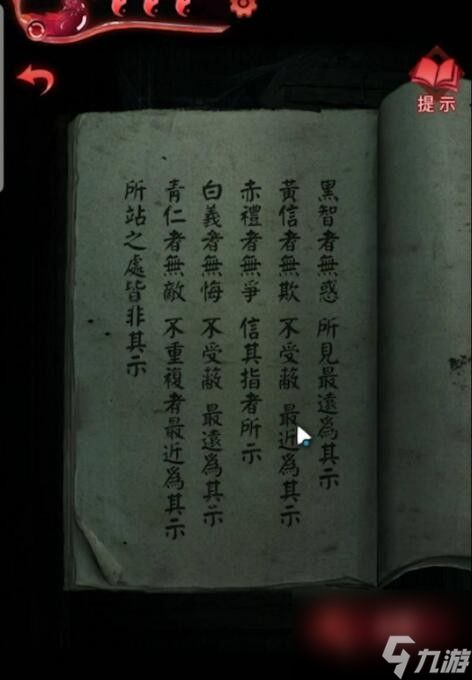 提示
黑智者無惑 所見最遠為其示
黃信者無欺 不受蔽 最近為其示
赤禮者無爭 信其指者所示
白義者無悔 不受蔽 最遠為其示
青仁者無敵 不重複者最近為其示
所站之處皆非其示
九游